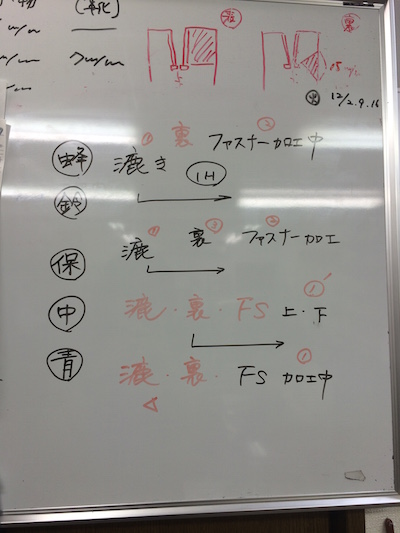 (靴)
7m/m
表
裏
15 m/m
12/2.9.16
① 裏 ② ファスナー加工中
蜂 漉き
1H
鈴
① ③ ②
保 漉 裏 ファスナー加工
中 漉・裏・FS 上・下 ①
青 漉・裏・FS 加工中 ①